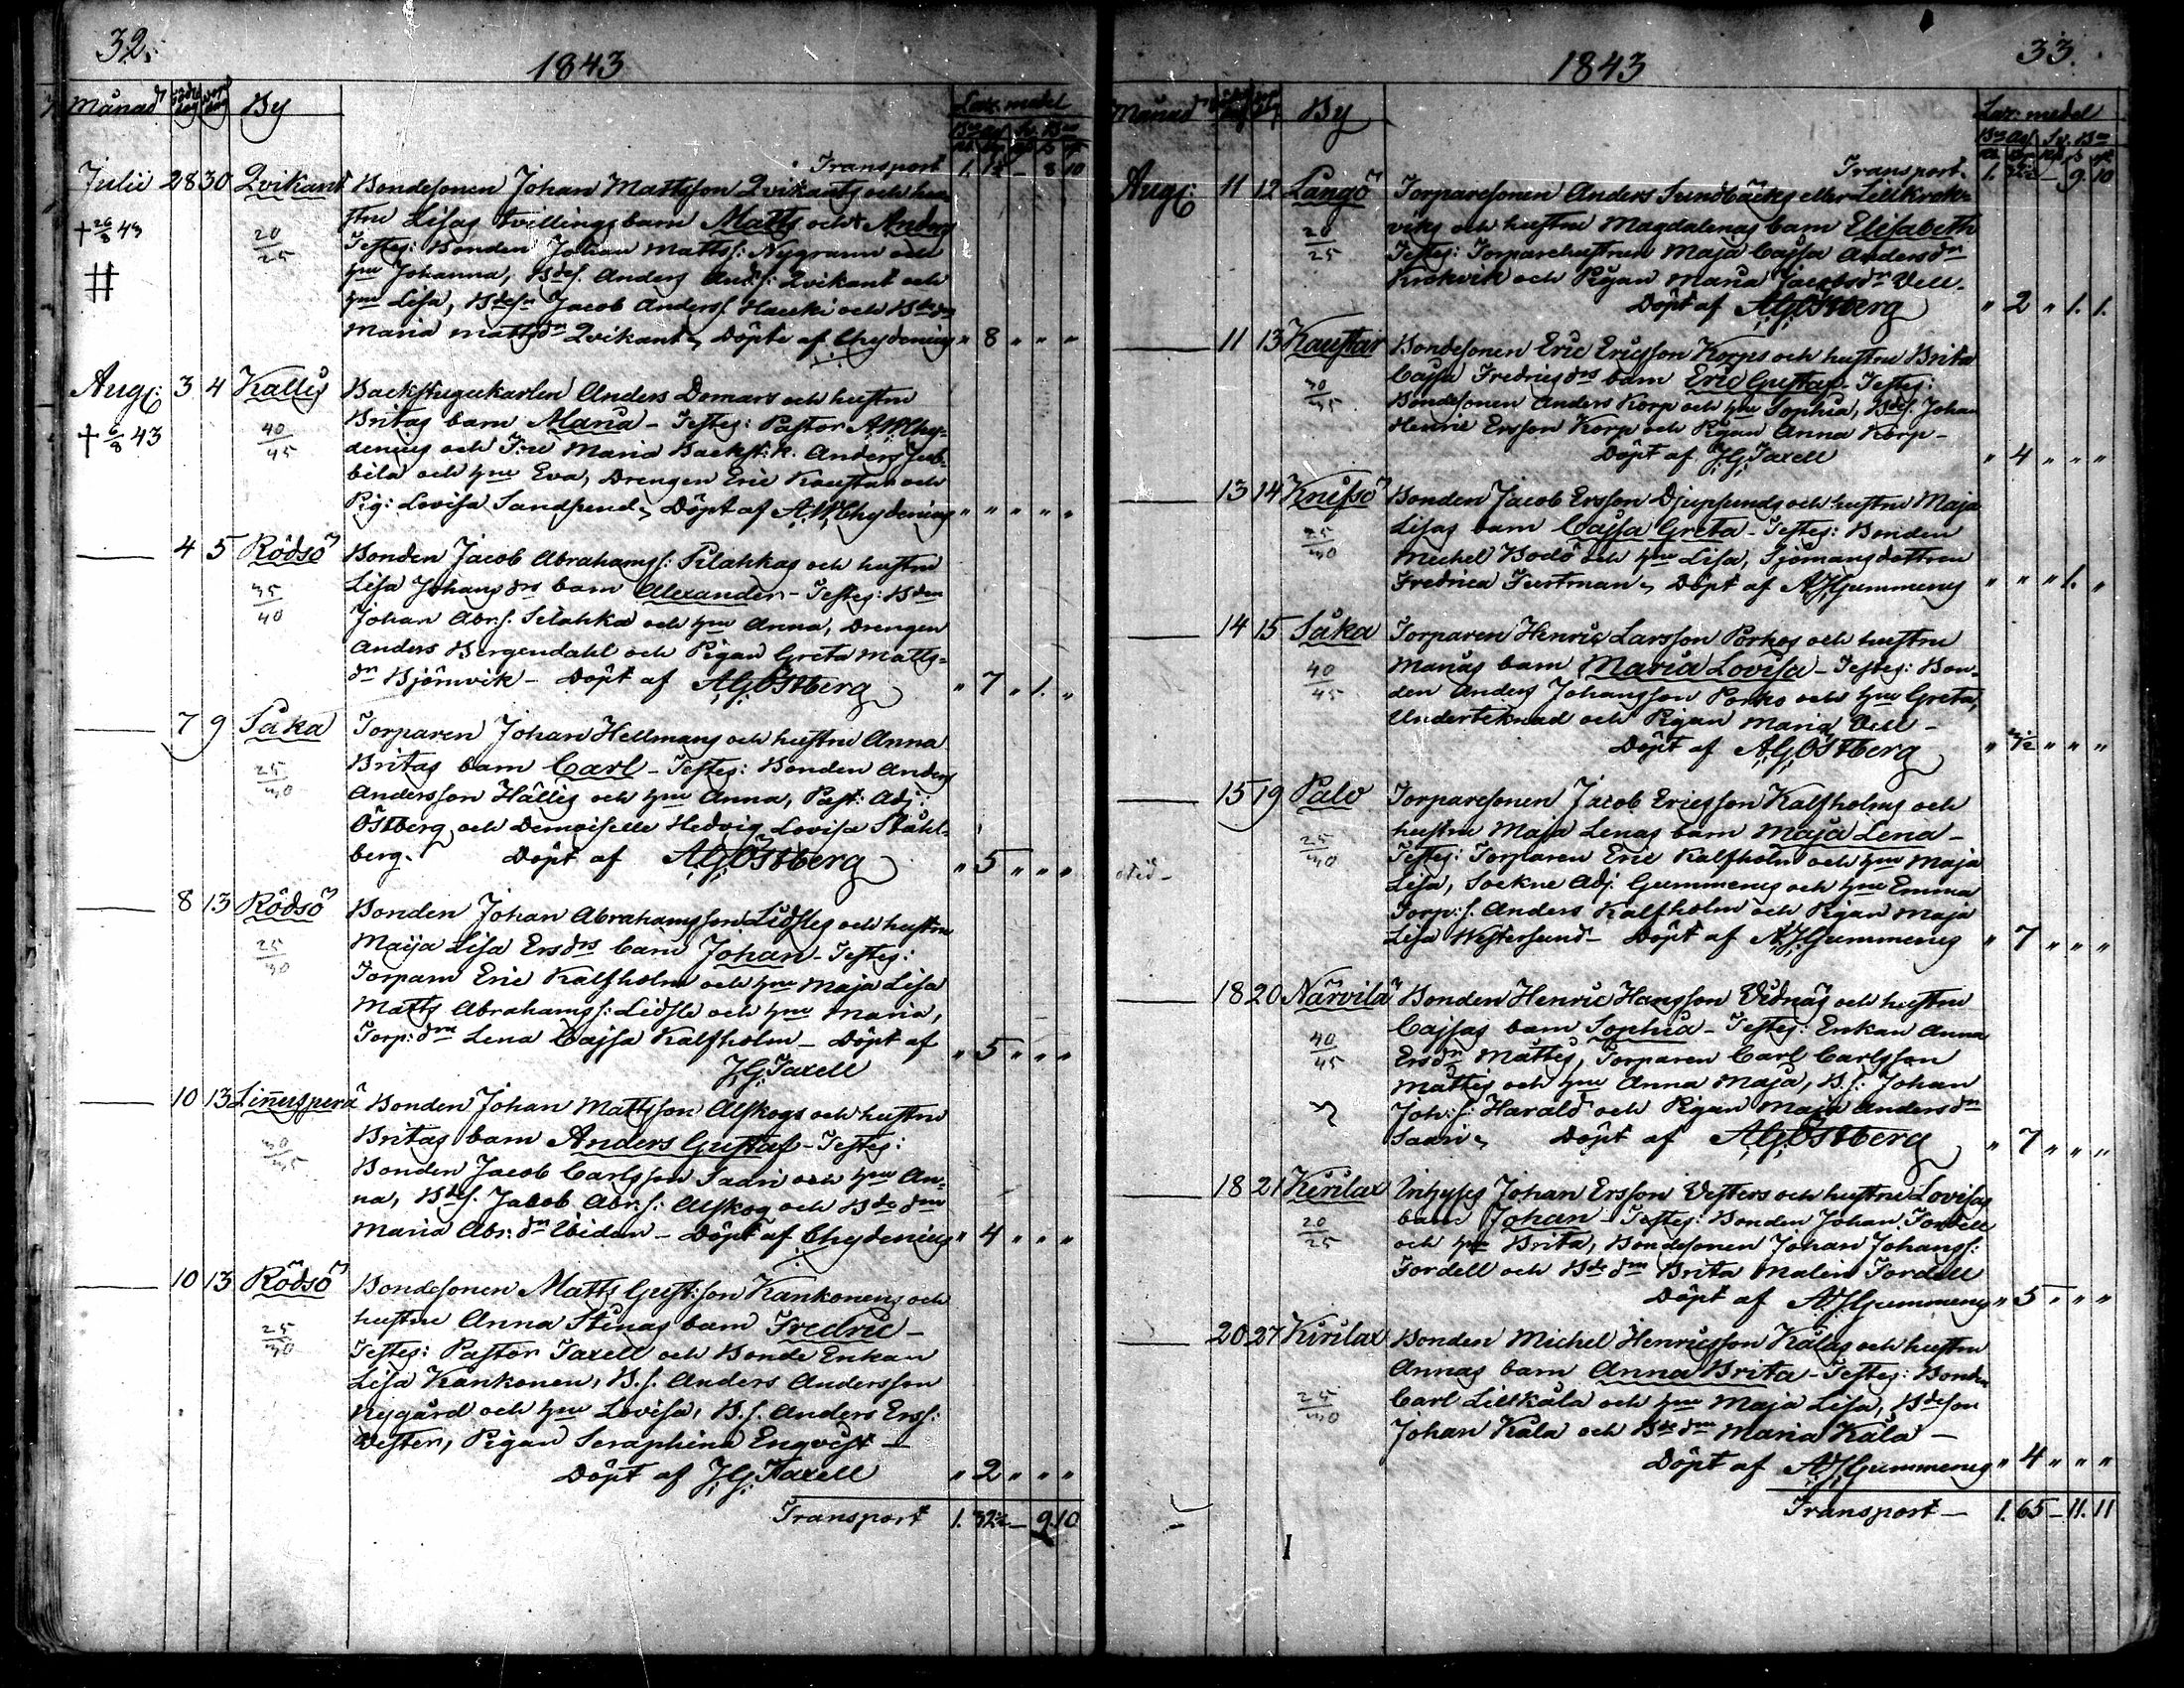 32.
1843
Månad Född dag Döpt dag By Laz: medel
Transport 1. 1½ – 8 10
Julii 28 30 Qvikant Bondesonen Johan Mattsson Qvikants och hu-
stru Lisas tvillingsbarn Matts och + Anders
+ 26/8 43 20/25 Testes: Bonden Johan Matts s: Nygrann och
hru Johanna, Bdes. Anders And:s: Qvikant och
hru Lisa, Bdesn Jacob Anderss. Haeski och Bde dn
Maria Mattsdn Qvikant, Döpte af Chydenius " 8 " " "
Aug: 3 4 Kallis Backstugukarlen Anders Domars och hustru
+ 6/8 43 40/45 Britas barn Maria – Testes: Pastor A.W. Chy-
denius och Fru Maria Backst: k. Anders Jub-
bila och hru Eva, Drengen Eric Kaustar och
Pig: Lovisa Sandsund, Döpt af A.W. Chydenius " " " " "
4 5 Rödsö Bonden Jacob Abrahams s: Pilahkas och hustru
35/40 Lisa Johans drs barn Alexander – Testes: Bden
Johan Abr:s. Pilahka och hru Anna, Drengen
Anders Bergendahl och Pigan Greta Matts-
dn Björnvik – Döpt af A.G. Östberg " 7 " 1. "
7 9 Såka Torparen Johan Hellmans och hustru Anna
25/30 Britas barn Carl – Testes: Bonden Anders
Andersson Hällis och hru Anna, Past: Adj:
Östberg och Demoiselle Hedvig Lovisa Ståhl-
berg. Döpt af A.G. Östberg " 5 " " "
8 13 Rödsö Bonden Johan Abrahamsson Lidsles och hustru
25/30 Maija Lisa Ersdrs barn Johan – Testes:
Torparn Eric Kalfholm och hru Maja Lisa
Matts Abrahams s: Lidsle och hru Maria,
Torp:drn Lena Cajsa Kalfholm – Döpt af
J.G. Taxell " 5 " " "
10 13 Linnusperä Bonden Johan Mattsson Alskogs och hustru
30/35 Britas barn Anders Gustaf – Testes:
Bonden Jacob Carlsson Saari och hru An-
na, Bdes. Jacob Abr:s: Alskog och Bde drn
Maria Abr: dn Abidan – Döpt af Chydenius " 4 " " "
10 13 Rödsö Bondesonen Matts Gust:son Kankonens och
25/30 hustru Anna Stinas barn Fredric –
Testes: Pastor Taxell och Bonde Enkan
Lisa Kankonen, B.s. Anders Andersson
Nygård och hru Lovisa, B.s. Anders Erss:
Wester, Pigan Seraphina Enqvist –
Döpt af J.G. Taxell " 2 " " "
Transport 1. 32½ – 9. 10
33.
1843
Månad By Laz: medel
Transport. 1. 32½ – 9. 10
Aug: 11 12 Långö Torparesonen Anders Sundbäcks eller Lillkrok-
20/25 viks och hustru Magdalenas barn Elisabeth
Testes: Torparehustrun Maja Cajsa Andersdn
Krokvik och Pigan Maria Jacobsdn Dell.
Döpt af A.G. Östberg " 2 " 1. 1.
11 13 Kaustar Bondesonen Eric Ericsson Korps och hustru Brita
30/35 Cajsa Fredricsdrs barn Eric Gustaf – Testes:
Bondesonen Anders Korp och hru Sophia, Bdes. Johan
Henric Ersson Korp och Pigan Anna Korp –
Döpt af J.G. Taxell " 4 " " "
13 14 Knifsö Bonden Jacob Ersson Djupsunds och hustru Maja
25/30 Lisas barn Cajsa Greta – Testes: Bonden
Michel Bodö och hru Lisa, Sjömansdottren
Fredrica Furtman, Döpt af A.J. Gummerus " " " 1. "
14 15 Såka Torparen Henric Larsson Porkos och hustru
40/45 Marias barn Maria Lovisa – Testes: Bon-
den Anders Johansson Porko och hru Greta,
Underteknad och Pigan Maria Dell –
Döpt af A.G. Östberg " 3½ " " "
15 19 Palo Torparesonen Jacob Ericsson Kalfholms och
25/30 hustru Maja Lenas barn Maja Lena –
Testes: Torparen Eric Kalfholm och hru Maja
Lisa, Sockne Adj. Gummerus och hru Emma
Torp:s. Anders Kalfholm och Pigan Maja
Lisa Westersund – Döpt af A.J. Gummerus " 7 " " "
18 20 Närvilä Bonden Henric Hansson Widnäs och hustru
40/45 Cajsas barn Sophia – Testes: Enkan Anna
Ersdn Mattis, Torparen Carl Carlsson
Mattis och hru Anna Maja, B.s: Johan
Joh:s: Harald och Pigan Maja Andersdn
Saari, Döpt af A.G. Östberg " 7 " " "
18 21 Kirilax Inhyses Johan Ersson Westers och hustru Lovisas
20/25 barn Johan – Testes: Bonden Johan Fordell
och hru Brita, Bondesonen Johan Johans s:
Fordell och Bde drn Brita Malin Fordell
Döpt af A.J. Gummerus " 5 " " "
20 27 Kirilax Bonden Michel Henricsson Kålas och hustru
25/30 Annas barn Anna Brita – Testes: Bonden
Carl Lillkåla och hru Maja Lisa, Bdeson
Johan Kåla och Bde drn Maria Kåla –
Döpt af A.J. Gummerus " 4 " " "
Transport – 1. 65 – 11. 11